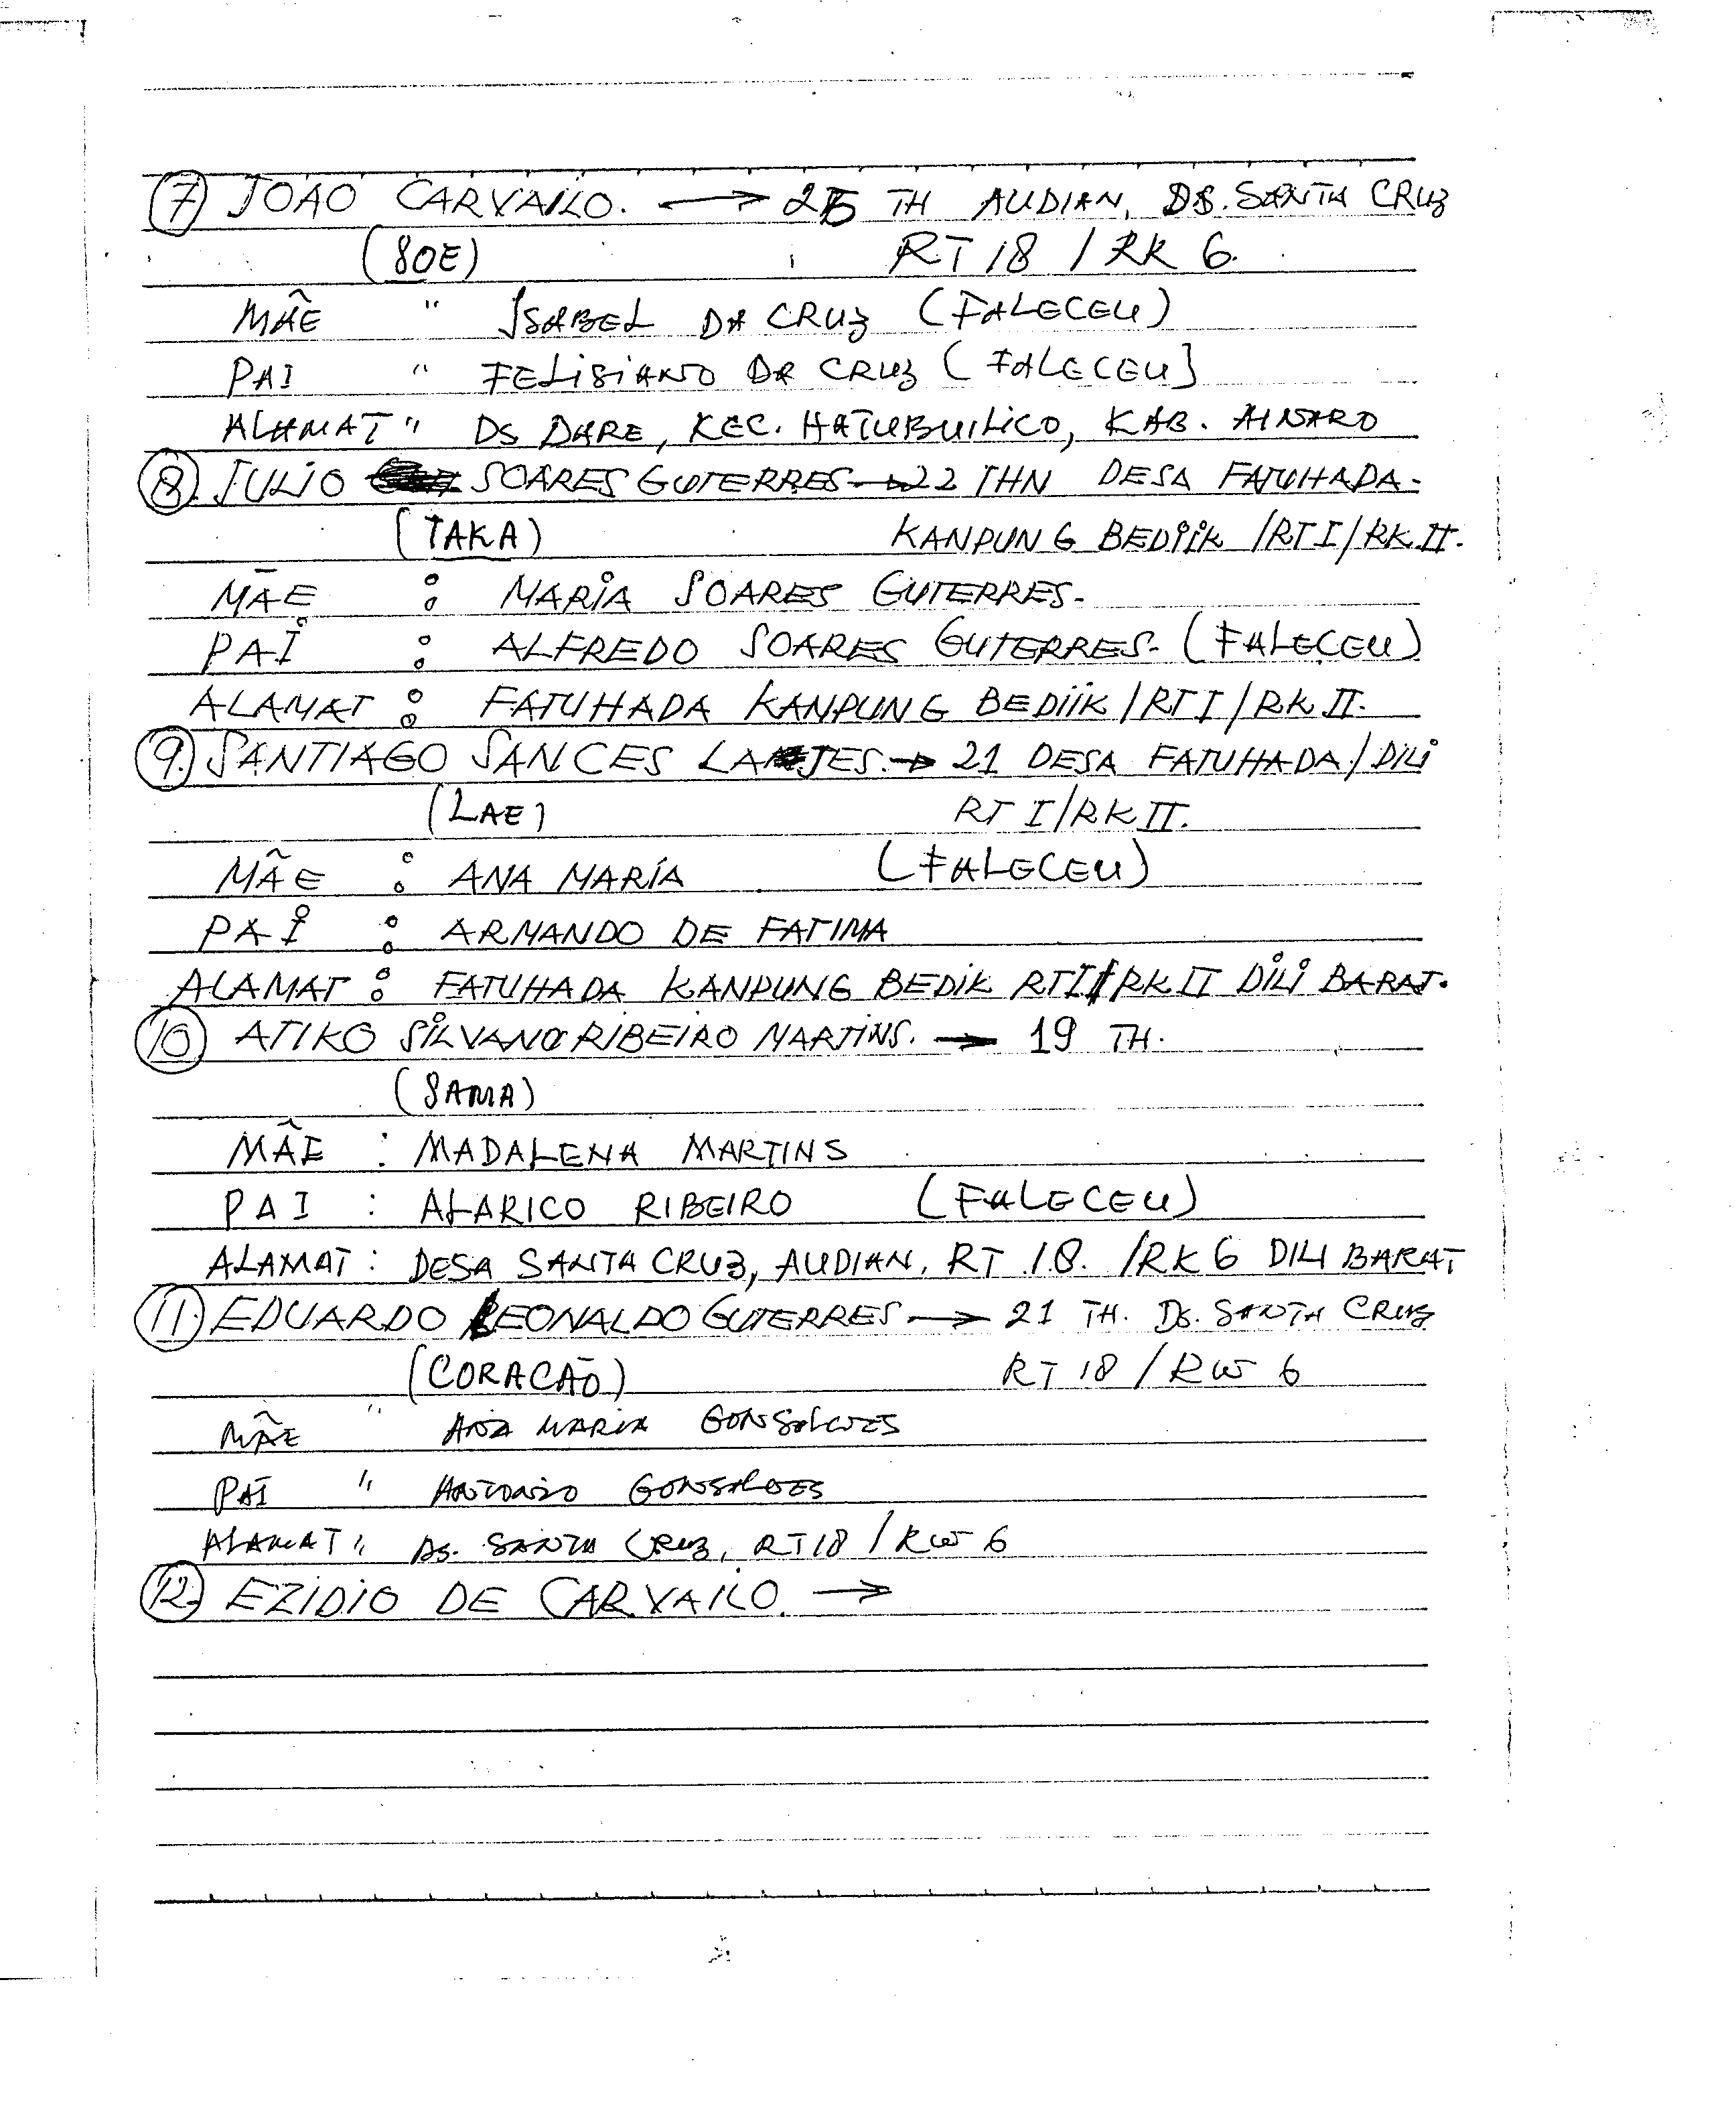 7) JOAO CARVAILO. → 25 TH AUDIAN, DS. SANTA CRUZ
(SOE) RT 18 / RK 6.
MÃE " ISABEL DA CRUZ (FALECEU)
PAI " FELISIANO DA CRUZ (FALECEU]
ALAMAT " DS DARE, KEC. HATUBUILICO, KAB. AINARO
8. JULIO SOARES GUTERRES → 22 THN DESA FATUHADA-
(TAKA) KANPUNG BEDIIK /RT I/RK II.
MÃE : MARIA SOARES GUTERRES-
PAI : ALFREDO SOARES GUTERRES- (FALECEU)
ALAMAT : FATUHADA KANPUNG BEDIIK /RT I/RK II-
9. SANTIAGO SANCES LAJES. → 21 DESA FATUHADA/DILI
(LAE) RT I/RK II.
MÃE : ANA MARÍA (FALECEU)
PAI : ARMANDO DE FATIMA
ALAMAT : FATUHADA KANPUNG BEDIK RT I/RK II DILI BARAT.
10 ATIKO SILVANO RIBEIRO MARTINS. → 19 TH.
(SAMA)
MÃE : MADALENA MARTINS
PAI : ALARICO RIBEIRO (FALECEU)
ALAMAT : DESA SANTA CRUZ, AUDIAN, RT 18. /RK 6 DILI BARAT
11. EDUARDO LEONALDO GUTERRES → 21 TH. DS. SANTA CRUZ
(CORACÃO) RT 18 / RW 6
MÃE " ANA MARIA GONSALVES
PAI " ANTONIO GONSALVES
ALAMAT " DS. SANTA CRUZ, RT 18 / RW 6
12. EZIDIO DE CARVAILO. →